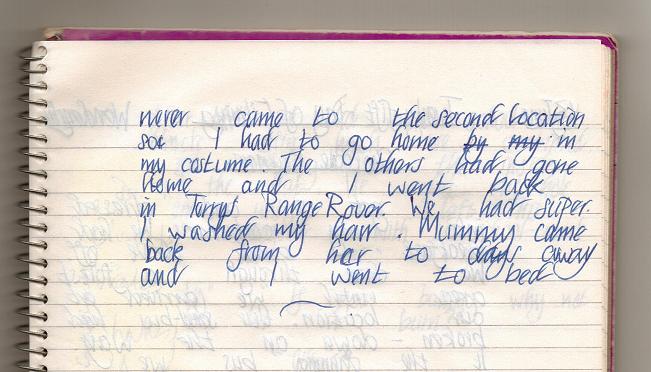 never came to the second location
so I had to go home by my in
my costume. The others had gone
home and I went back
in Terrys Range Rover. We had super.
I washed my hair. Mummy came
back from har to days away
and I went to bed